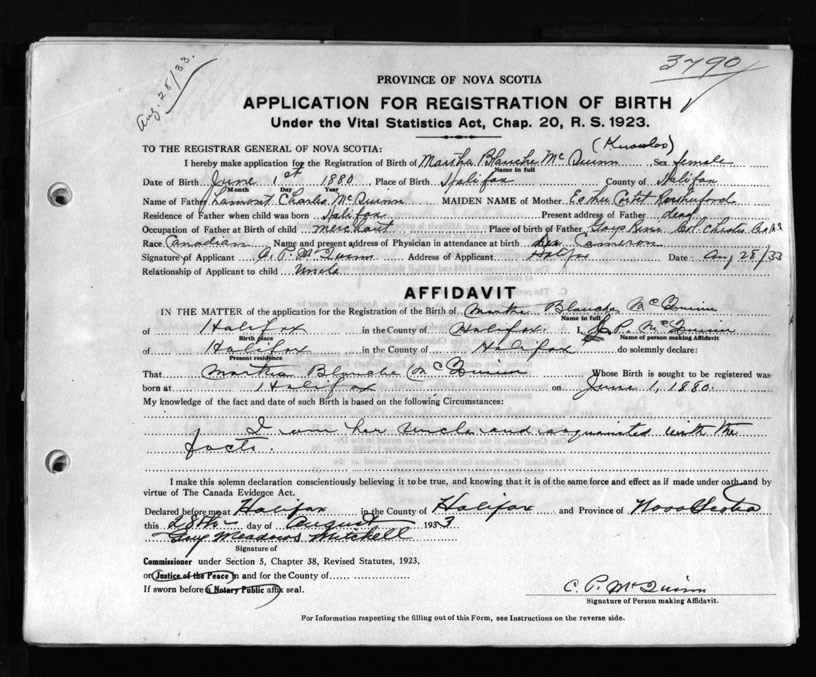 Aug. 28/33.
3790
PROVINCE OF NOVA SCOTIA
APPLICATION FOR REGISTRATION OF BIRTH
Under the Vital Statistics Act, Chap. 20, R. S. 1923.
TO THE REGISTRAR GENERAL OF NOVA SCOTIA: (Knowles)
I hereby make application for the Registration of Birth of Martha Blanche McQuinn Sex female
Name in full
Date of Birth June 1st 1880 Place of Birth Halifax County of Halifax
Month Day Year
Name of Father Lamont Charles McQuinn MAIDEN NAME of Mother Esther Rutherford
Residence of Father when child was born Halifax Present address of Father dead
Occupation of Father at Birth of child merchant Place of birth of Father Goys River Col. Chester
Race Canadian Name and present address of Physician in attendance at birth Cameron
Signature of Applicant C. P. McQuinn Address of Applicant Halifax Date Aug 28/33
Relationship of Applicant to child Uncle
AFFIDAVIT
IN THE MATTER of the application for the Registration of the Birth of Martha Blanche McQuinn
Name in full
of Halifax in the County of Halifax. I, P. McQuinn
Birth place Name of person making Affidavit
of Halifax in the County of Halifax do solemnly declare:
Present residence
That Martha Blanche McQuinn Whose Birth is sought to be registered was
born at Halifax on June 1, 1880.
My knowledge of the fact and date of such Birth is based on the following Circumstances:
I am her Uncle and acquainted with the
facts.
I make this solemn declaration conscientiously believing it to be true, and knowing that it is of the same force and effect as if made under oath and by
virtue of The Canada Evidence Act.
Declared before me at Halifax in the County of Halifax and Province of Nova Scotia
this 28th day of August 1933
Meadows Mitchell
Signature of
Commissioner under Section 5, Chapter 38, Revised Statutes, 1923,
or Justice of the Peace in and for the County of
If sworn before a Notary Public affix seal.
C. P. McQuinn
Signature of Person making Affidavit.
For Information respecting the filling out of this Form, see Instructions on the reverse side.